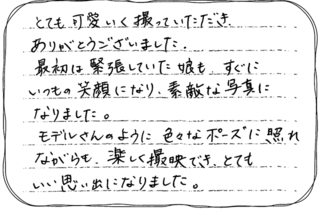 とても可愛いく撮っていただき
ありがとうございました.
最初は緊張していた娘も、すぐに
いつもの笑顔になり、素敵な写真に
なりました。
モデルさんのように色々なポーズに、照れ
ながらも、楽しく撮映でき、とても
いい思い出になりました。